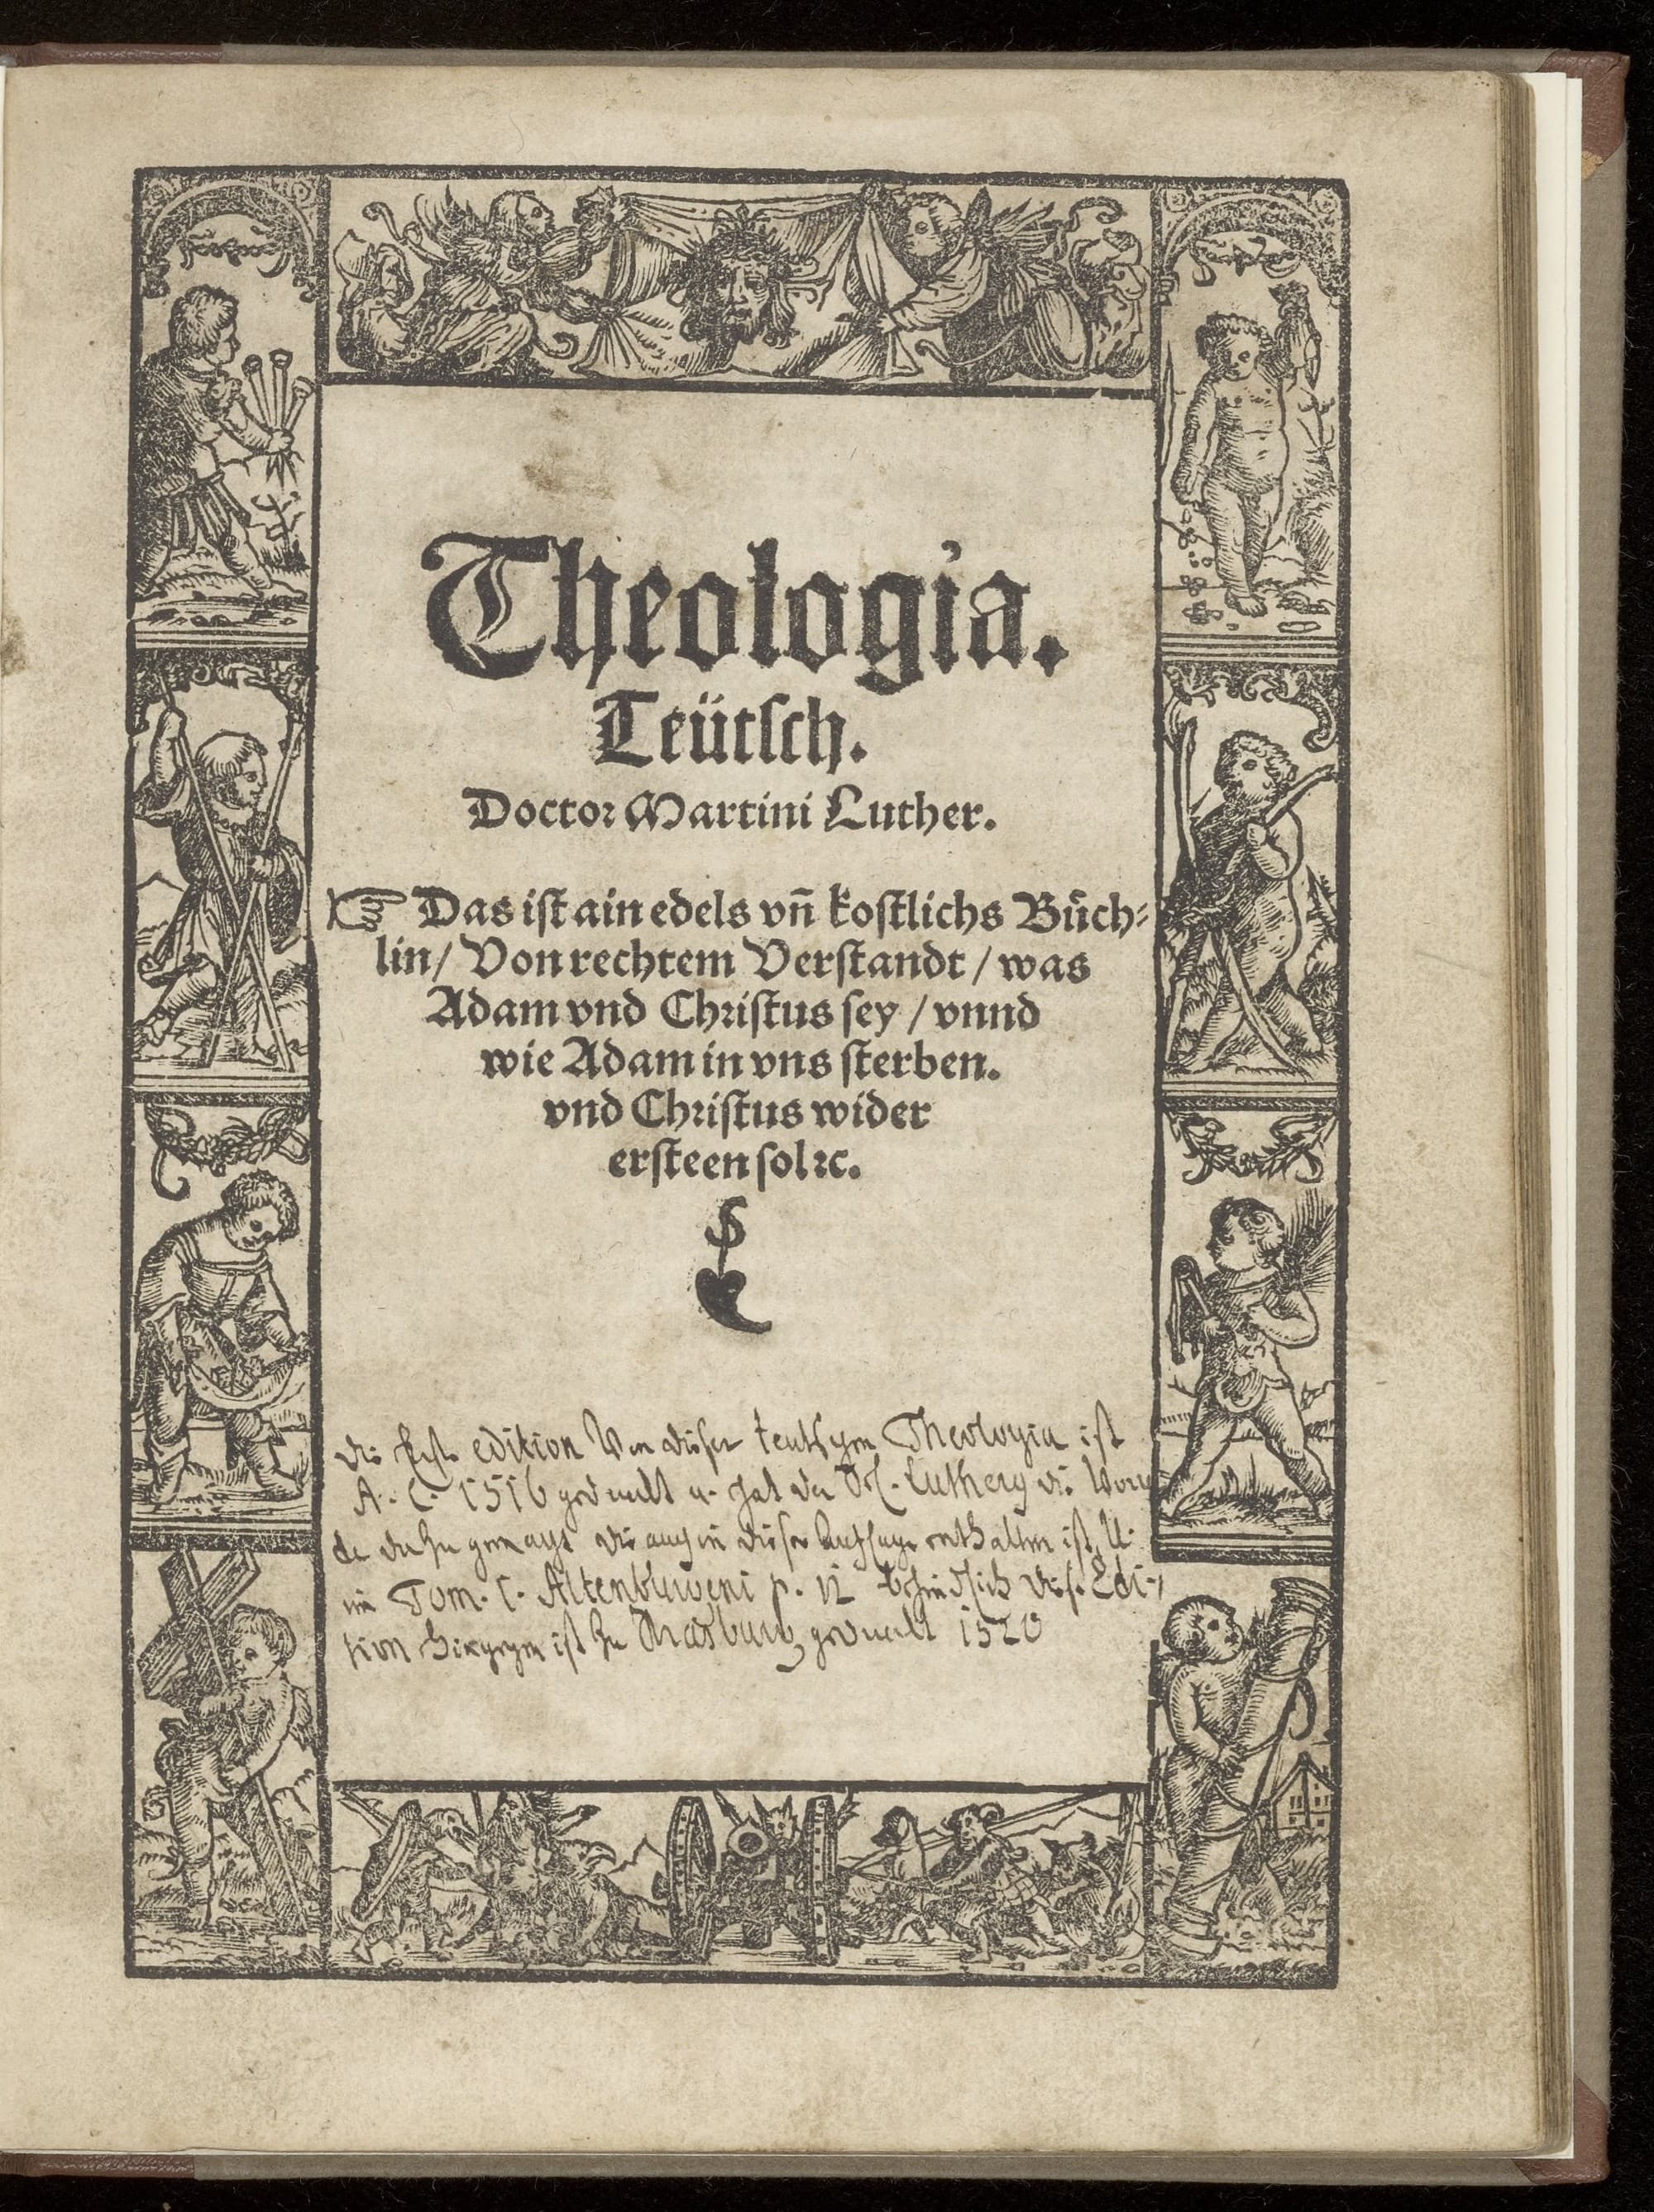 Theologia.
Teütſch.
Doctor Martini Luther.
☞ Das iſt ain edels vn̄ koſtlichs Bůch⸗
lin/ Von rechtem Verſtandt / was
Adam vnd Chriſtus ſey / vnnd
wie Adam in vns ſterben.
vnd Chriſtus wider
erſteen ſol ꝛc.
die Erſte edition Von dieſer teutſchen Theologia iſt
A. C. 1516 gedruckt u. hat der D. Luther die Vorre
de dazu gemacht die auch in dieſer Auflage enthalten iſt, U.
im Tom. I. Altenburgeni p. 12 befindlich dieſe Edi-
tion hingegen iſt zu Strasburg gedruckt 1520